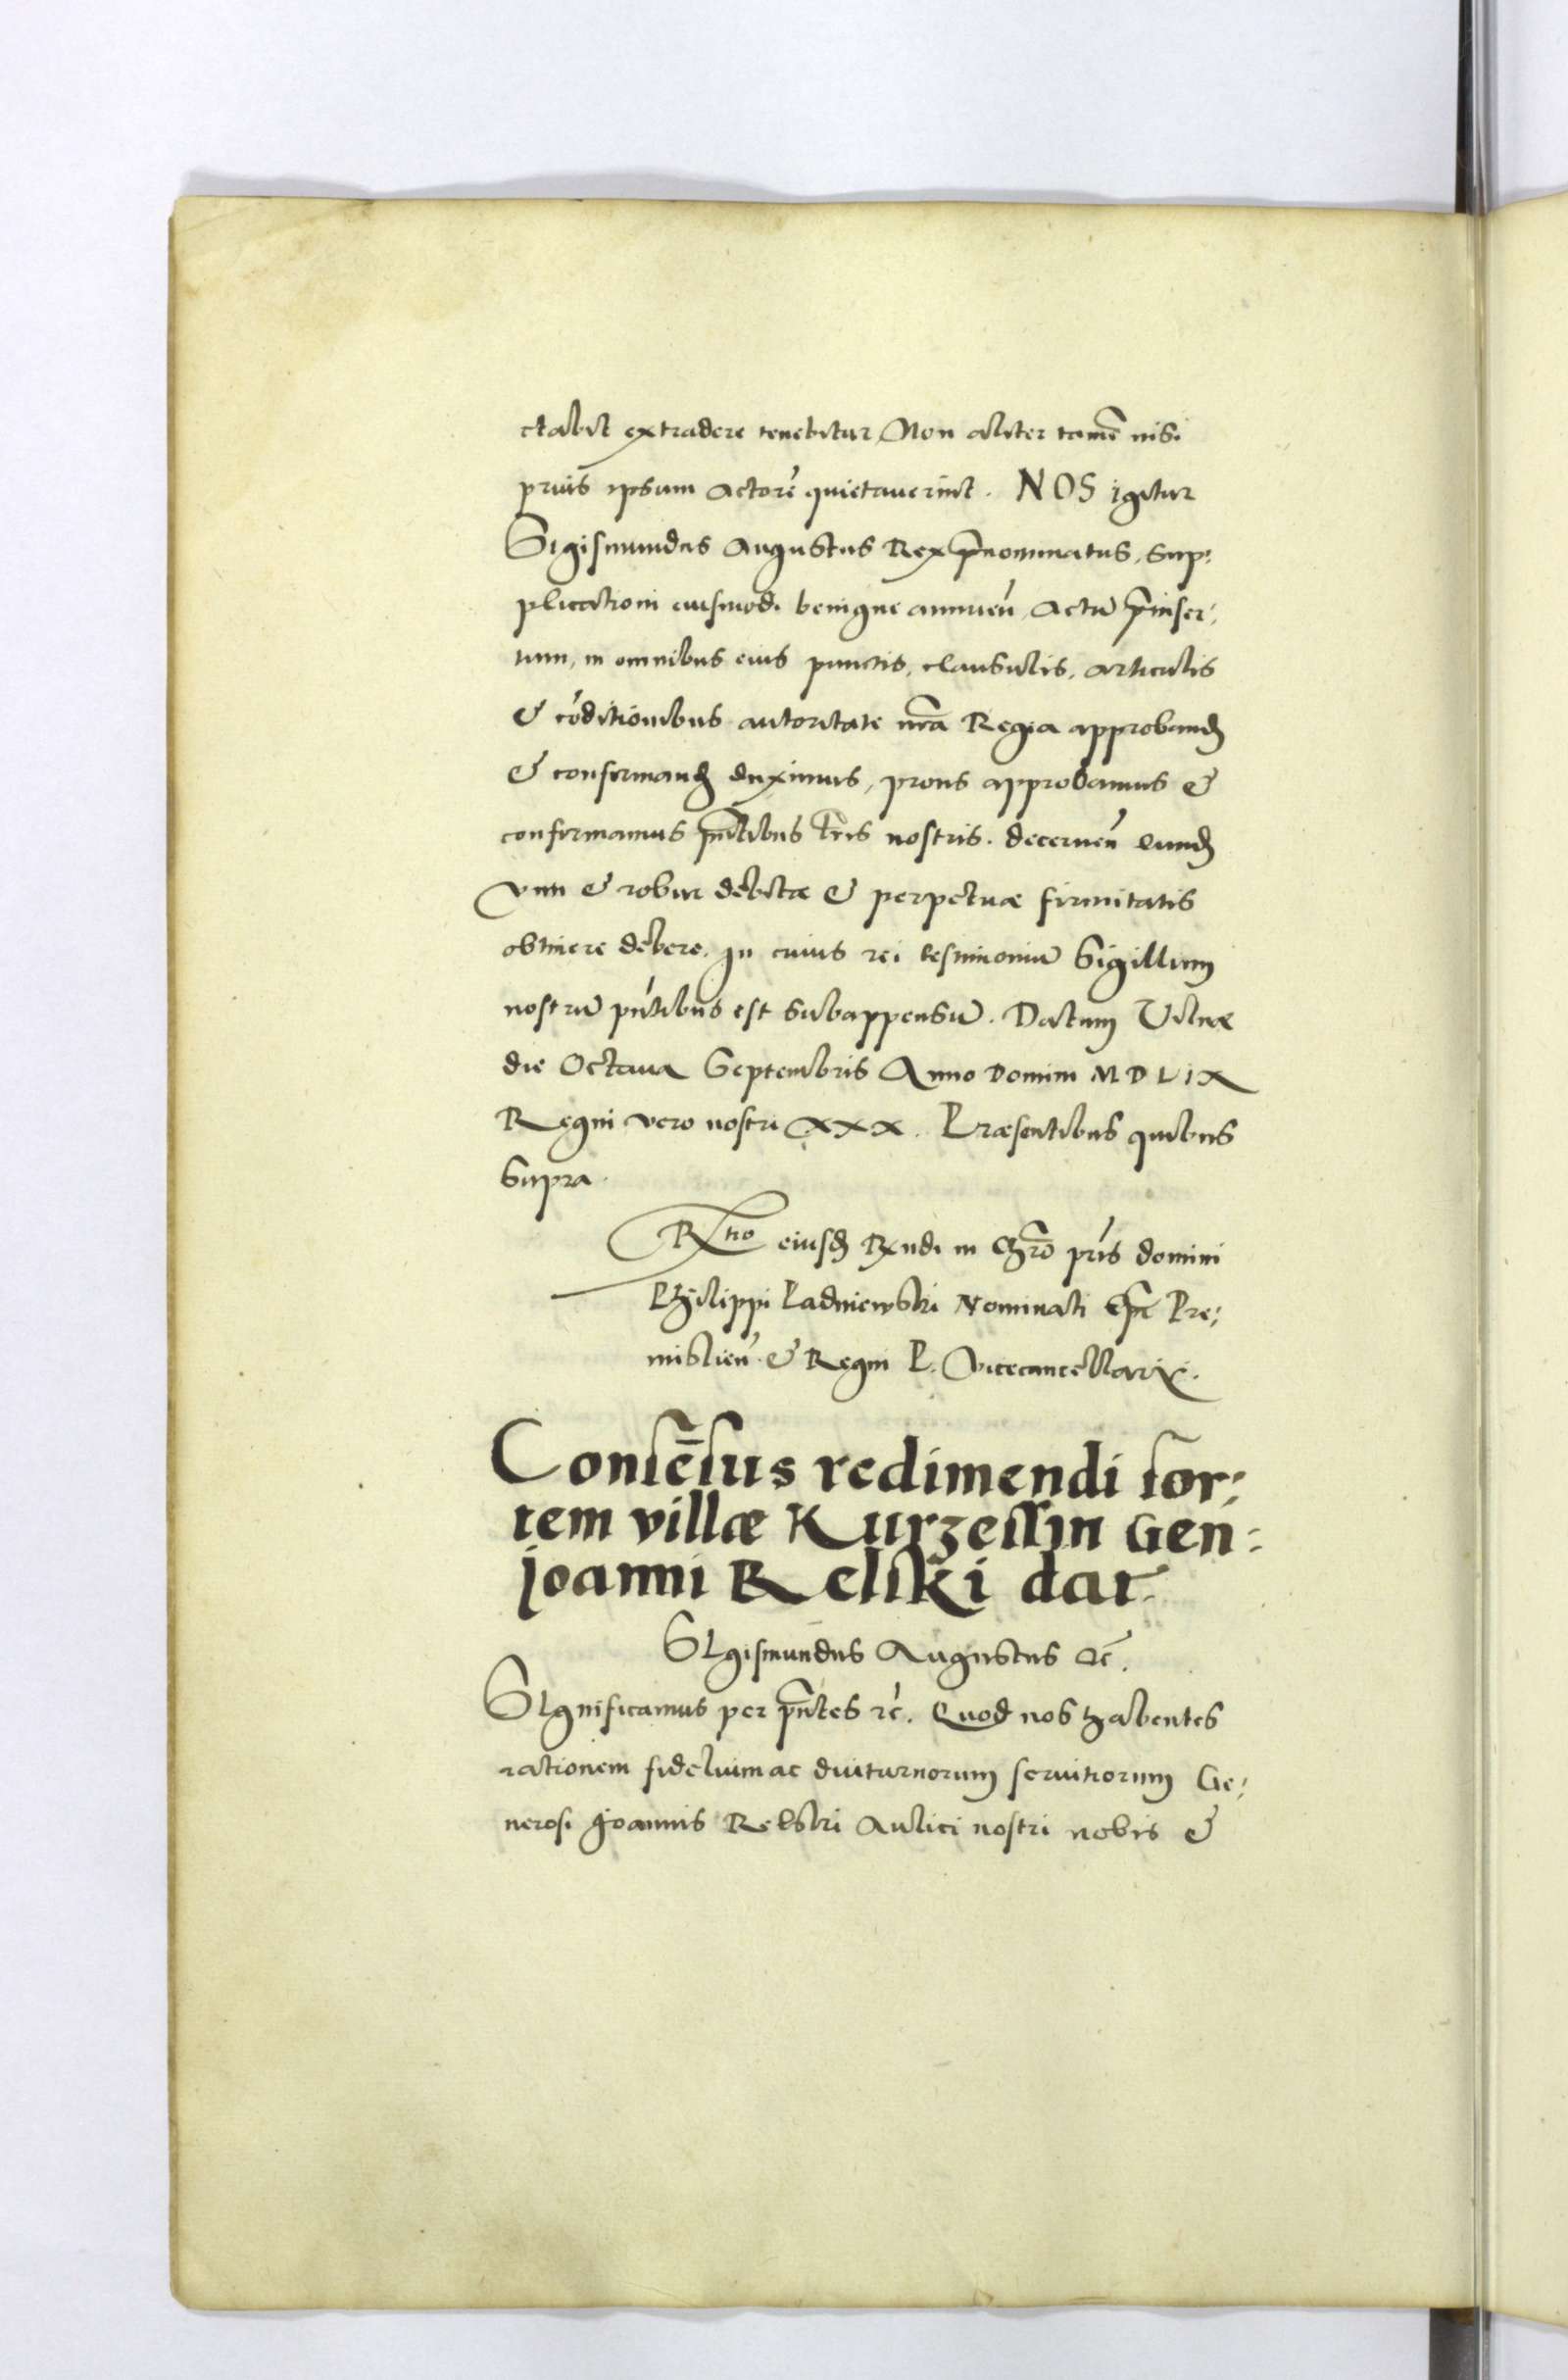 ctabit extradere tenebitur, Non aliter tamē nisi
prius ipsum actorē quietauerint. NOS igitur
Sigismundus Augustus Rex p̄nominatus, sup:
plicationi eiusmodi benigne annuen̄, actū p̄inser:
tum, in omnibus eius punctis, clausulis, articulis
& cōditionibus autoritate nr̄a Regia approband
& confirmand duximus, prout approbamus &
confirmamus p̄ntibus lr̄is nostris. decernen̄ eund
vim & robur debitæ & perpetuæ firmitatis
obtinere debere. In cuius rei testimoniū Sigillum
nostrū pn̄tibus est subappensū. Datum Vilnæ
die Octaua Septembris Anno Domini MDLIX
Regni vero nostri XXX. Præsentibus quibus
supra.
Rtio eiusd Rndi in Chr̄o pr̄is domini
Philippi Padniewski Nominati Ep̄i Pre:
mislien̄ & Regni P. Vicecancellarij.
Consēsus redimendi sor:
tem villæ Kurzessin Gen:
Joanni Relski dat.
SIgismundus Augustus &c̄.
SIgnificamus per p̄ntes &c̄. Quod nos habentes
rationem fidelium ac diuturnorum seruitiorum Ge:
nerosi Joannis Relski Aulici nostri nobis &